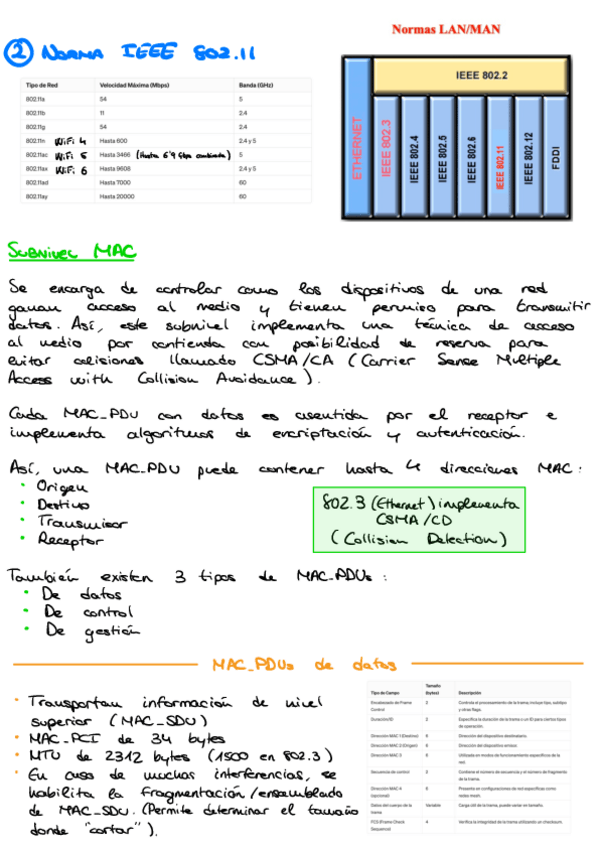 Normas LAN/MAN
② NORMA IEEE 802.11
Tipo de Red Velocidad Máxima (Mbps) Banda (GHz)
802.11a 54 5
802.11b 11 2.4
802.11g 54 2.4
802.11n WiFi 4 Hasta 600 2.4 y 5
802.11ac WiFi 5 Hasta 3466 (Hasta 6'9 Gbps combinada) 5
802.11ax WiFi 6 Hasta 9608 2.4 y 5
802.11ad Hasta 7000 60
802.11ay Hasta 20000 60
IEEE 802.2
ETHERNET
IEEE 802.3
IEEE 802.4
IEEE 802.5
IEEE 802.6
IEEE 802.11
IEEE 802.12
FDDI
SUBNIVEL MAC
Se encarga de controlar como los dispositivos de una red
ganan acceso al medio y tienen permiso para transmitir
datos. Así, este subnivel implementa una técnica de acceso
al medio por contienda con posibilidad de reserva para
evitar colisiones llamado CSMA/CA (Carrier Sense Multiple
Access with Collision Avoidance).
Cada MAC_PDU con datos es asentida por el receptor e
implementa algoritmos de encriptación y autenticación.
Así, una MAC_PDU puede contener hasta 4 direcciones MAC:
• Origen
• Destino
• Transmisor
• Receptor
802.3 (Ethernet) implementa
CSMA/CD
(Collision Detection)
También existen 3 tipos de MAC_PDUs:
• De datos
• De control
• De gestión
MAC_PDUs de datos
• Transportan información de nivel
superior (MAC_SDU)
• MAC_PCI de 34 bytes
• MTU de 2312 bytes (1500 en 802.3)
• En caso de muchas interferencias, se
habilita la fragmentación/ensamblado
de MAC_SDU. (Permite determinar el tamaño
donde "cortar").
Tipo de Campo Tamaño (bytes) Descripción
Encabezado de Frame Control 2 Controla el procesamiento de la trama; incluye tipo, subtipo y otras flags.
Duración/ID 2 Especifica la duración de la trama o un ID para ciertos tipos de operación.
Dirección MAC 1 (Destino) 6 Dirección del dispositivo destinatario.
Dirección MAC 2 (Origen) 6 Dirección del dispositivo emisor.
Dirección MAC 3 6 Utilizada en modos de funcionamiento específicos de la red.
Secuencia de control 2 Contiene el número de secuencia y el número de fragmento de la trama.
Dirección MAC 4 (opcional) 6 Presente en configuraciones de red específicas como redes mesh.
Datos del cuerpo de la trama Variable Carga útil de la trama, puede variar en tamaño.
FCS (Frame Check Sequence) 4 Verifica la integridad de la trama utilizando un checksum.